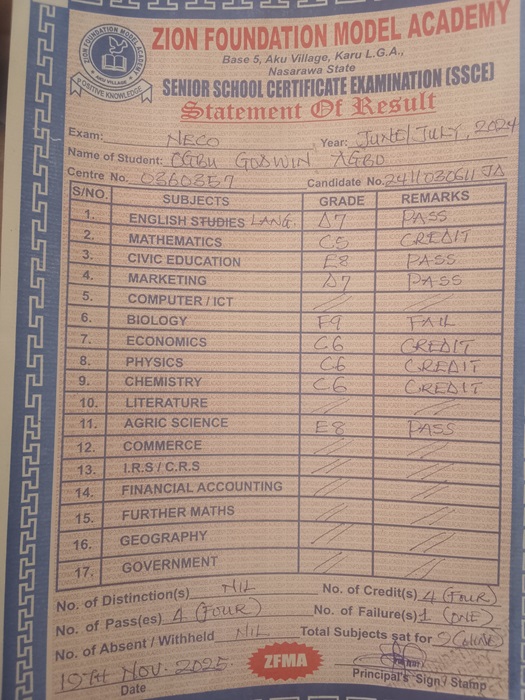 ZION FOUNDATION MODEL ACADEMY
AKU VILLAGE
POSITIVE KNOWLEDGE
ZION FOUNDATION MODEL ACADEMY
Base 5, Aku Village, Karu L.G.A.,
Nasarawa State
SENIOR SCHOOL CERTIFICATE EXAMINATION (SSCE)
Statement Of Result
Exam: NECO Year: JUNE/JULY, 2024
Name of Student: OGBU GODWIN AGBO
Centre No. 0360357 Candidate No. 2411030611 JA
S/NO. SUBJECTS GRADE REMARKS
1. ENGLISH STUDIES LANG. D7 PASS
2. MATHEMATICS C5 CREDIT
3. CIVIC EDUCATION E8 PASS
4. MARKETING D7 PASS
5. COMPUTER / ICT // //
6. BIOLOGY F9 FAIL
7. ECONOMICS C6 CREDIT
8. PHYSICS C6 CREDIT
9. CHEMISTRY C6 CREDIT
10. LITERATURE // //
11. AGRIC SCIENCE E8 PASS
12. COMMERCE // //
13. I.R.S / C.R.S // //
14. FINANCIAL ACCOUNTING // //
15. FURTHER MATHS // //
16. GEOGRAPHY // //
17. GOVERNMENT // //
No. of Distinction(s) NIL No. of Credit(s) 4 (FOUR)
No. of Pass(es) 4 (FOUR) No. of Failure(s) 1 (ONE)
No. of Absent / Withheld NIL Total Subjects sat for 9 (NINE)
19TH NOV. 2025 ZFMA
Date Principal's Sign / Stamp